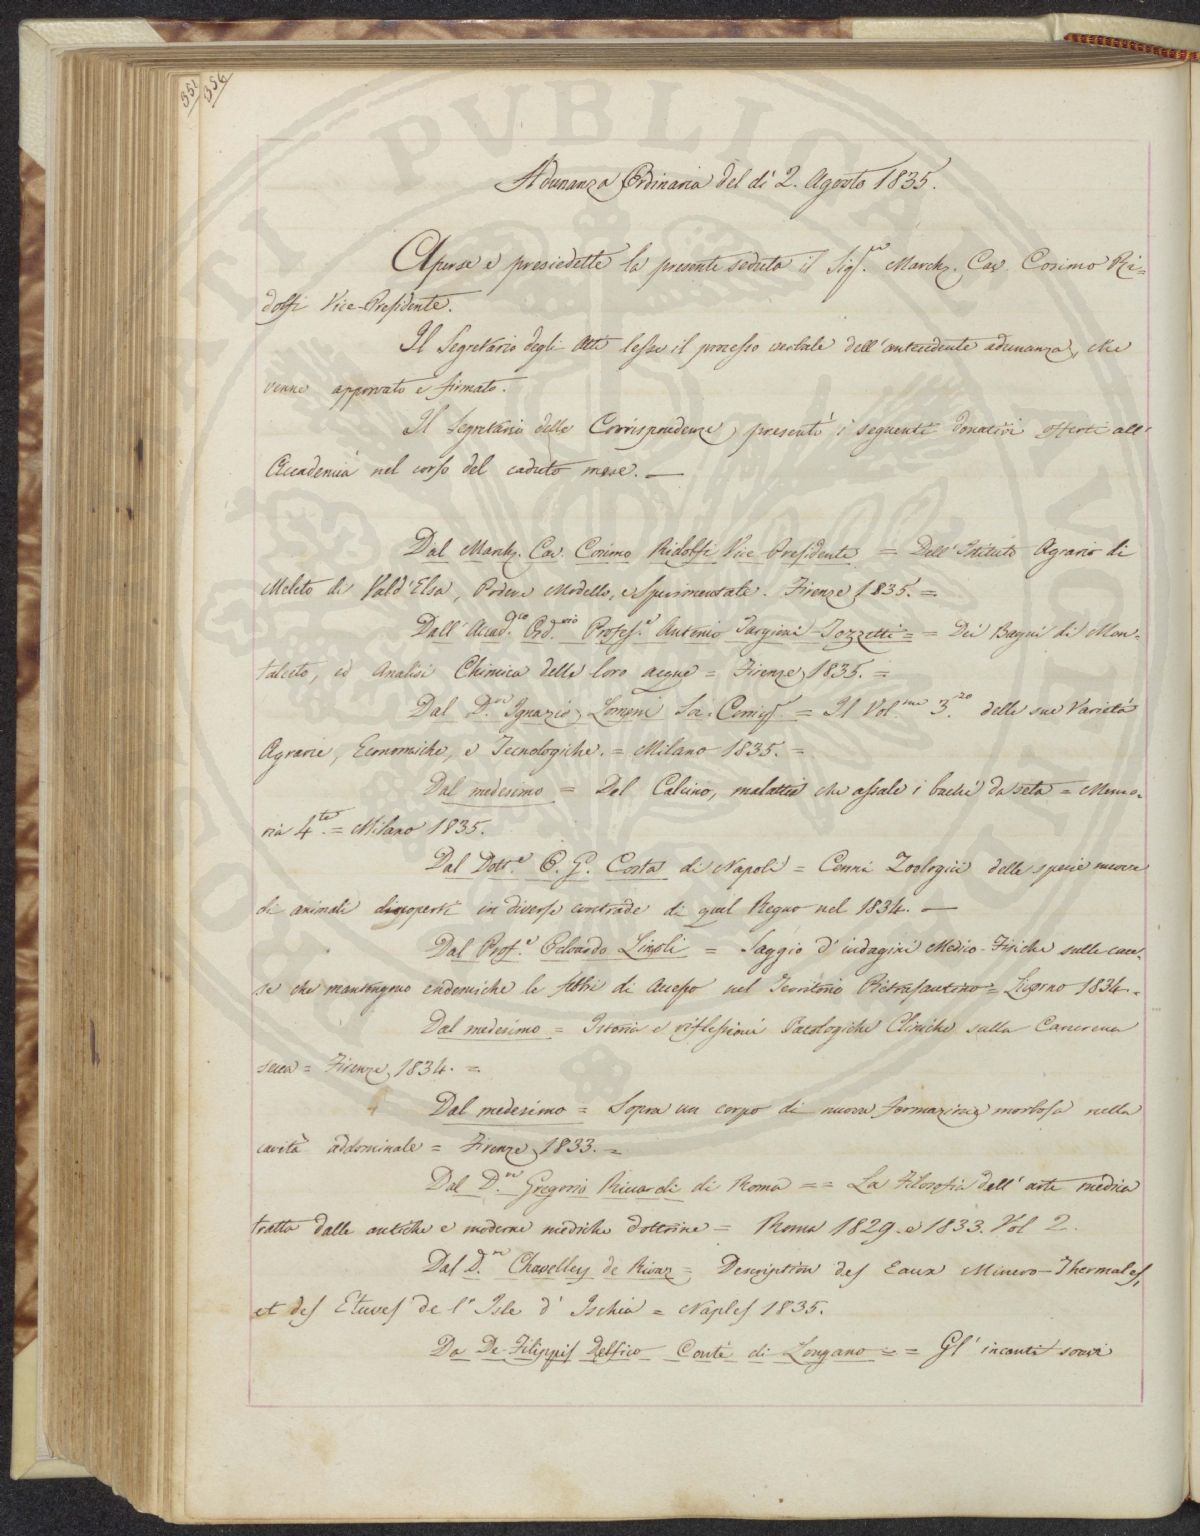 351 356
Adunanza Ordinaria del dì 2. Agosto 1835.
Aperse e presiedette la presente seduta il Sigr. March. Cav. Cosimo Ri=
dolfi Vice-Presidente.
Il Segretario degli Atti lesse il processo verbale dell'antecedente adunanza, che
venne approvato e firmato.
Il Segretario delle Corrispondenze, presentò i seguenti donativi offerti all'
Accademia nel corso del caduto mese. —
Dal March. Cav. Cosimo Ridolfi Vice Presidente = Dell'Istituto Agrario di
Meleto di Vald'Elsa, Podere Modello, e Sperimentale. Firenze 1835. =
Dall'Accad.co Ord.rio Profes.e Antonio Targioni Tozzetti = = Dei Bagni di Mon-
talceto, ed Analisi Chimica delle loro acque = Firenze 1835. =
Dal D.re Ignazio Lomeni Soc. Corrisp. = Il Vol.me 3.zo delle sue Varietà
Agrarie, Economiche, e Tecnologiche. = Milano 1835. =
Dal medesimo = Del Calcino, malattia che assale i bachi da seta = Memo-
ria 4.ta = Milano 1835.
Dal Dott.e O. G. Costa di Napoli = Cenni Zoologici delle specie nuove
di animali discoperti in diverse contrade di quel Regno nel 1834. —
Dal Prof.e Odoardo Linoli = Saggio d'indagini Medico-Fisiche sulle cau-
se che mantengono endemiche le febbri di Accesso nel Territorio Pietrasantino = Livorno 1834. =
Dal medesimo = Istoria e riflessioni Patologiche Cliniche sulla Cancrena
secca = Firenze 1834. =
Dal medesimo = Sopra un corpo di nuova formazione morbosa nella
cavità addominale = Firenze 1833. =
Dal D.re Gregorio Riccardi di Roma = = La Filosofia dell'arte medica
tratta dalle antiche e moderne mediche dottrine = Roma 1829. e 1833. Vol 2.
Dal D.re Chevalley de Rivaz = Description des Eaux Minero-Thermales,
et des Etuves de l'Isle d'Ischia = Naples 1835.
Da De Filippis Delfico Conte di Longano = = Gl'incanti soavi